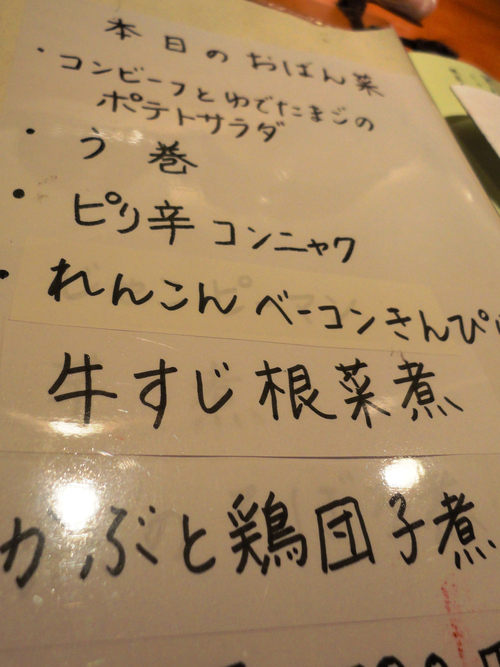 本日のおばん菜
・コンビーフとゆでたまごの
ポテトサラダ
・う巻
・ピリ辛コンニャク
・れんこんベーコンきんぴ
牛すじ根菜煮
かぶと鶏団子煮